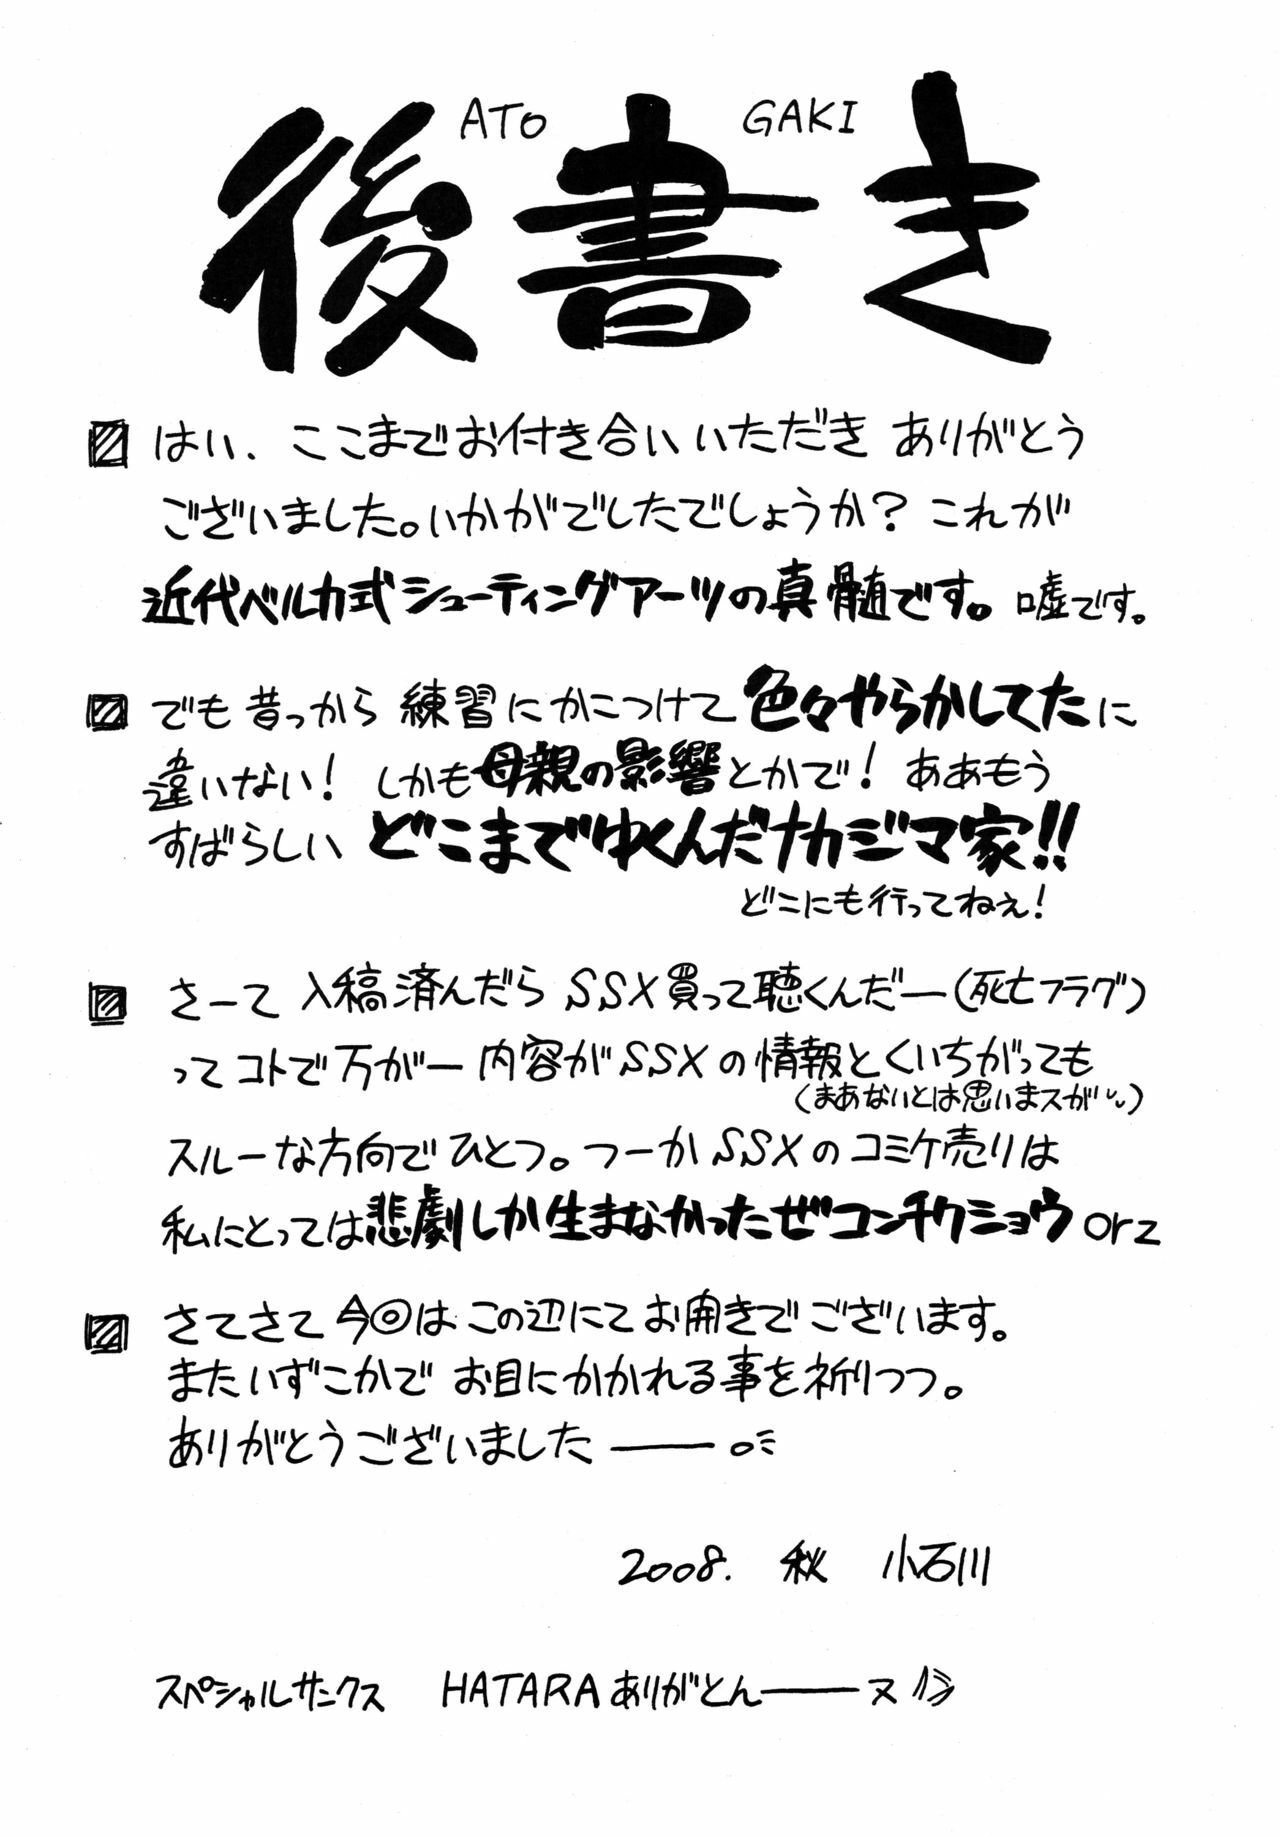 ATO GAKI
後書き
はい、ここまでお付き合いいただき ありがとう
ございました。いかがでしたでしょうか? これが
近代ベルカ式シューティングアーツの真髄です。嘘です。
でも昔っから練習にかこつけて色々やらかしてたに
違いない! しかも母親の影響とかで! ああもう
すばらしい どこまでゆくんだナカジマ家!!
どこにも行ってねぇ!
さーて 入稿済んだら SSX買って聴くんだー(死亡フラグ)
ってコトで万が一内容がSSXの情報とくいちがっても
(まあないとは思いまスが)
スルーな方向でひとつ。つーかSSXのコミケ売りは
私にとっては悲劇しか生まなかったぜコンチクショウ orz
さてさて今回はこの辺にてお開きでございます。
またいずこかでお目にかかれる事を祈りつつ。
ありがとうございました――o
2008. 秋 小石川
スペシャルサンクス HATARAありがとん――ヌ